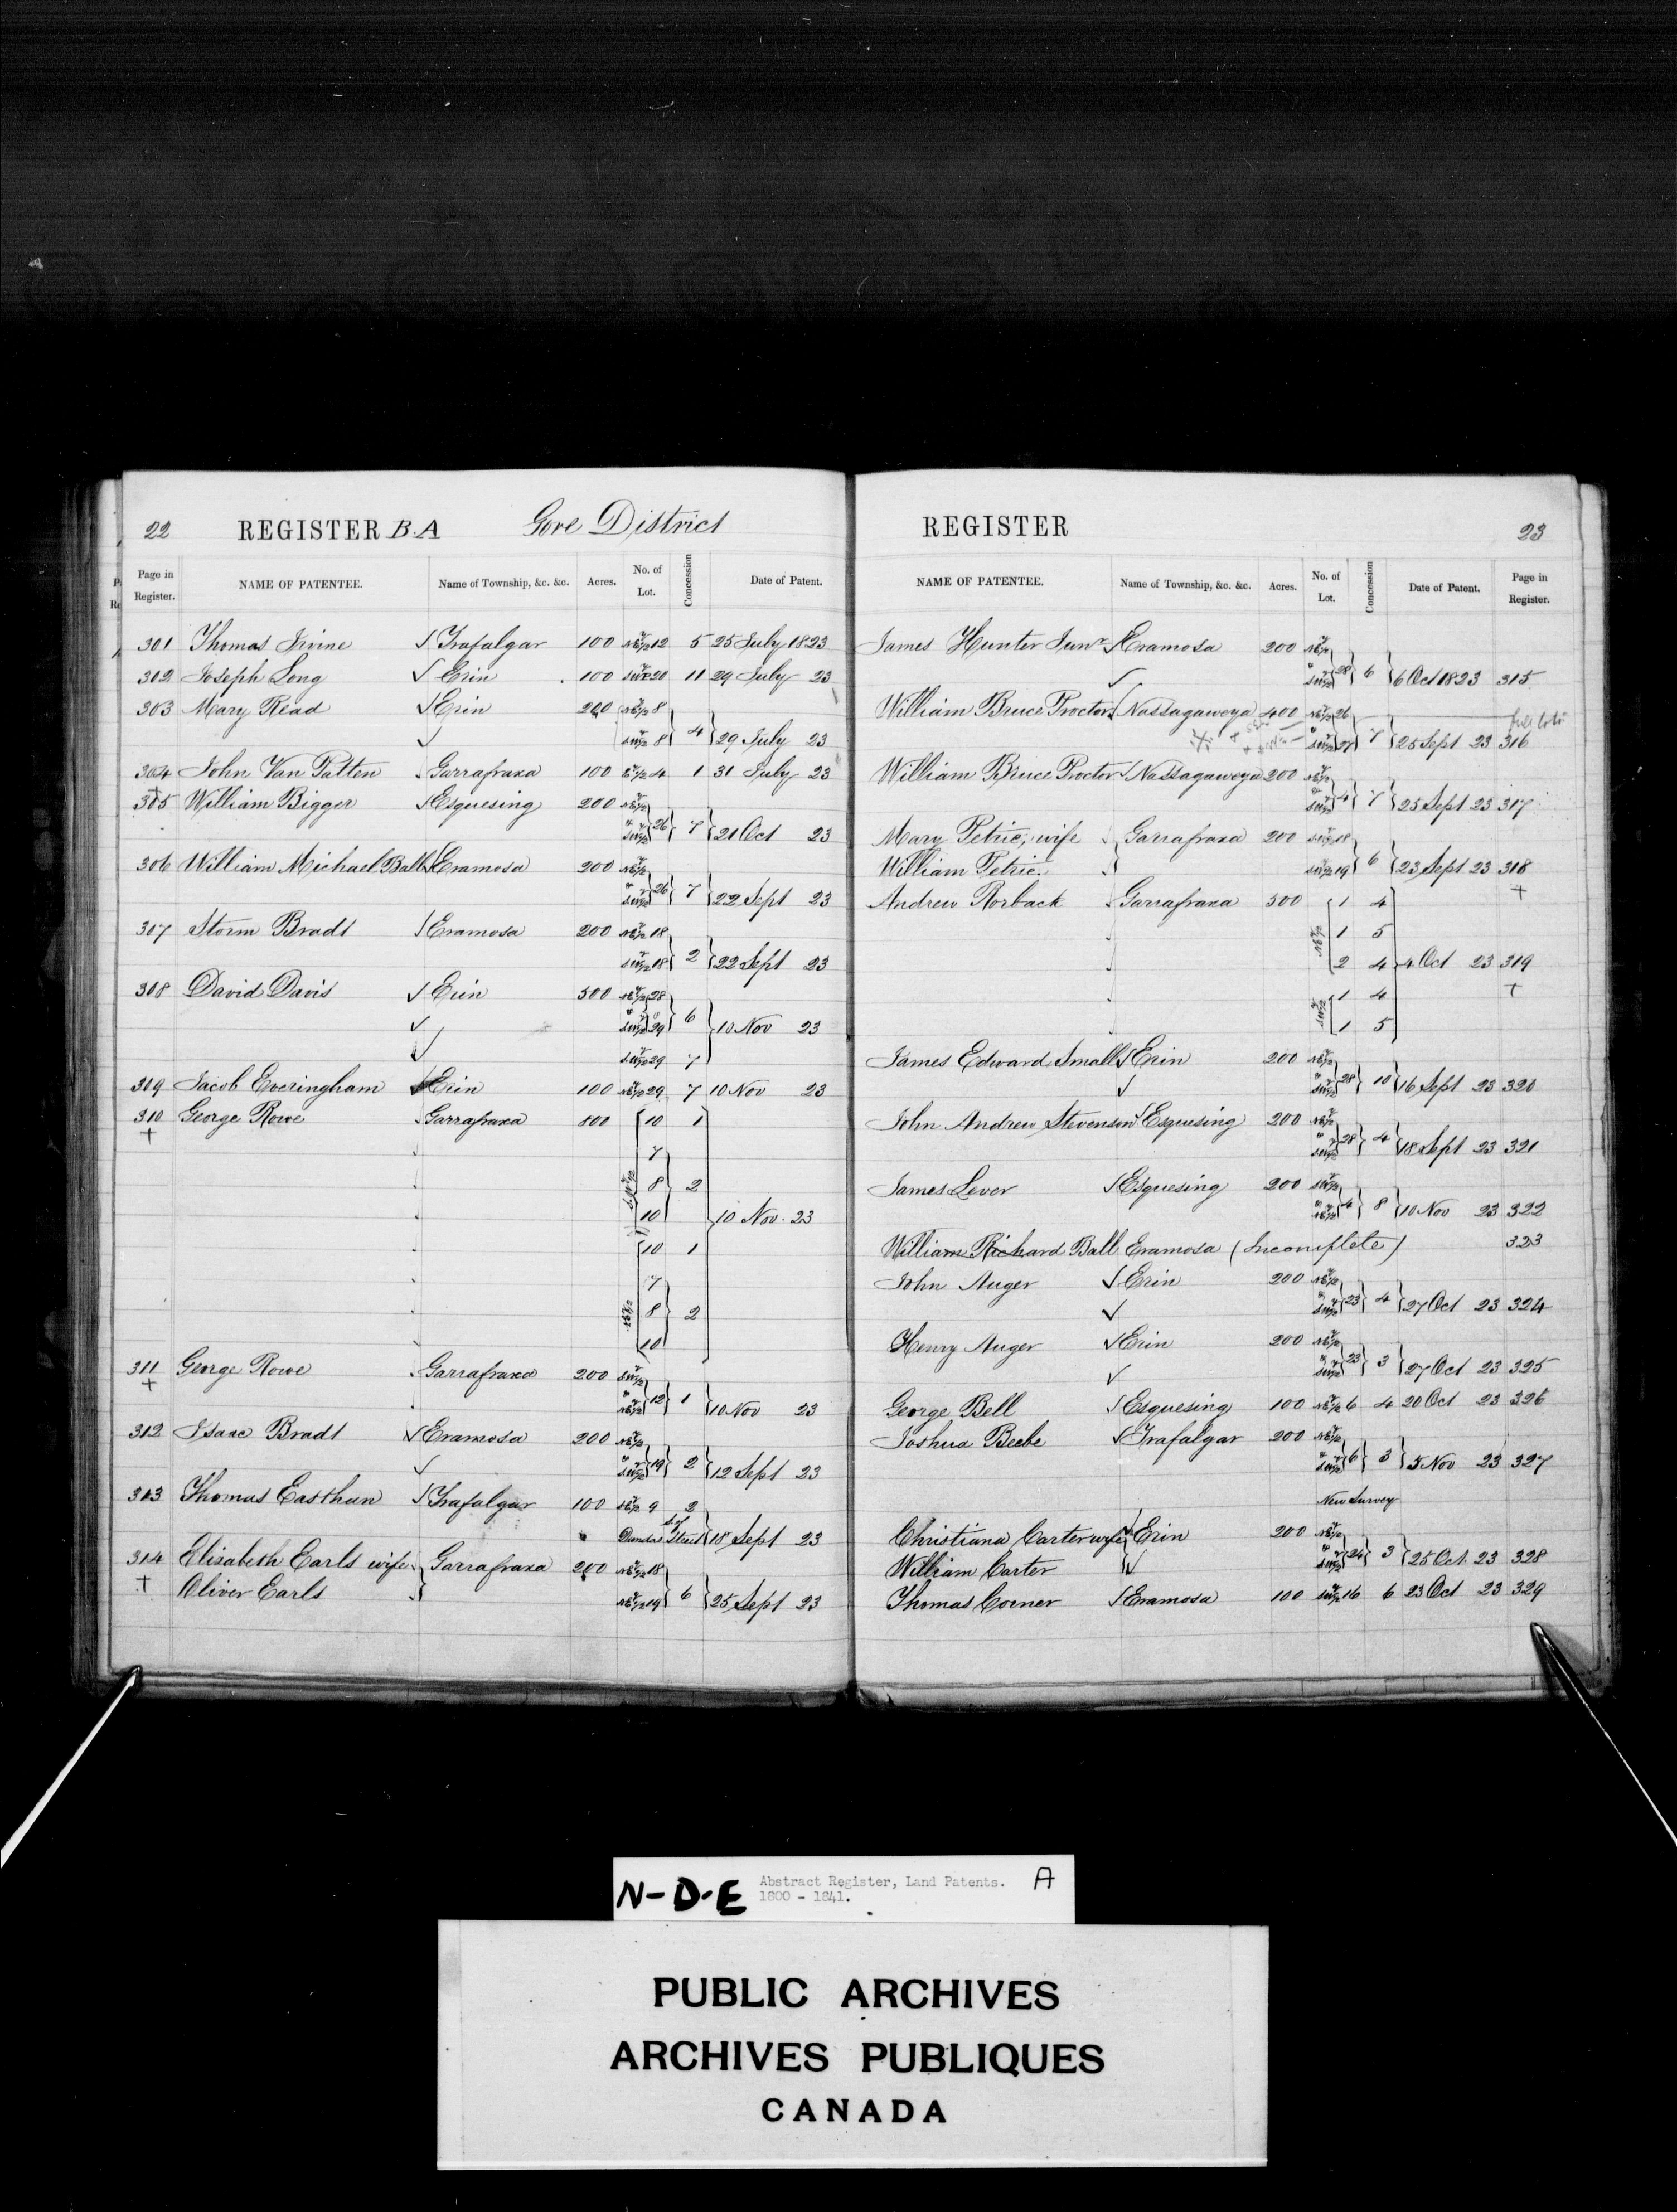 22 REGISTER B.A Gore District
Page in Register. NAME OF PATENTEE. Name of Township, &c. &c. Acres. No. of Lot. Concession Date of Patent.
301 Thomas Irvine Trafalgar 100 NE½ 12 5 25 July 1823
302 Joseph Long Erin 100 SW½ 20 11 29 July 23
303 Mary Read Erin 200 NE½ 8
SW½ 8 4 29 July 23
304 John Van Patten Garrafraxa 100 E½ 4 1 31 July 23
305 William Bigger Esquesing 200 NE½
" SW½ 26 7 21 Oct 23
306 William Michael Ball Eramosa 200 NE½
" SW½ 26 7 22 Sept 23
307 Storm Bradt Eramosa 200 NE½ 18
SW½ 18 2 22 Sept 23
308 David Davis Erin 500 NE½ 28
" SW½ 29 6 10 Nov 23
SW½ 29 7
309 Jacob Everingham Erin 100 NE½ 29 7 10 Nov 23
310 George Rowe Garrafraxa 800 10 1
+ 7
SW½ 8 2
10 10 Nov. 23
10 1
7
NE½ 8 2
10
311 George Rowe Garrafraxa 200 SW½
+ " NE½ 12 1 10 Nov 23
312 Isaac Bradt Eramosa 200 NE½
" SW½ 19 2 12 Sept 23
313 Thomas Easthun Trafalgar 100 9 2
Dundas Street 18 Sept 23
314 Elizabeth Earls wife Garrafraxa 200 NE½ 18
+ Oliver Earls NE½ 19 6 25 Sept 23
REGISTER 23
NAME OF PATENTEE. Name of Township, &c. &c. Acres. No. of Lot. Concession Date of Patent. Page in Register.
James Hunter Junr Eramosa 200 NE½
" SW½ 28 6 6 Oct 1823 315
William Bruce Proctor Nassagaweya 400 NE½ 26
" SW½ 27 7 25 Sept 23 316
William Bruce Proctor Nassagaweya 200 NE½
" SW½ 4 7 25 Sept 23 317
Mary Petrie, wife Garrafraxa 200 SW½ 18
William Petrie SW½ 19 6 23 Sept 23 318
Andrew Rorback Garrafraxa 500 1 4 +
NE½ 1 5
2 4 4 Oct 23 319
1 4 +
SW½ 1 5
James Edward Small Erin 200 NE½
" SW½ 28 10 16 Sept 23 320
John Andrew Stevenson Esquesing 200 NE½
" SW½ 28 4 18 Sept 23 321
James Lever Esquesing 200 SW½
" NE½ 4 8 10 Nov 23 322
William Richard Ball Eramosa (Incomplete) 323
John Auger Erin 200 NE½
" SW½ 23 4 27 Oct 23 324
Henry Auger Erin 200 NE½
" SW½ 23 3 27 Oct 23 325
George Bell Esquesing 100 NE½ 6 4 20 Oct 23 326
Joshua Beebe Trafalgar 200 NE½
" SW½ 6 3 5 Nov 23 327
New Survey
Christiana Carter wife Erin 200 NE½
William Carter " SW½ 24 3 25 Oct. 23 328
Thomas Corner Eramosa 100 SW½ 16 6 23 Oct 23 329
N-D-E Abstract Register, Land Patents. A
1800 - 1841.
PUBLIC ARCHIVES
ARCHIVES PUBLIQUES
CANADA